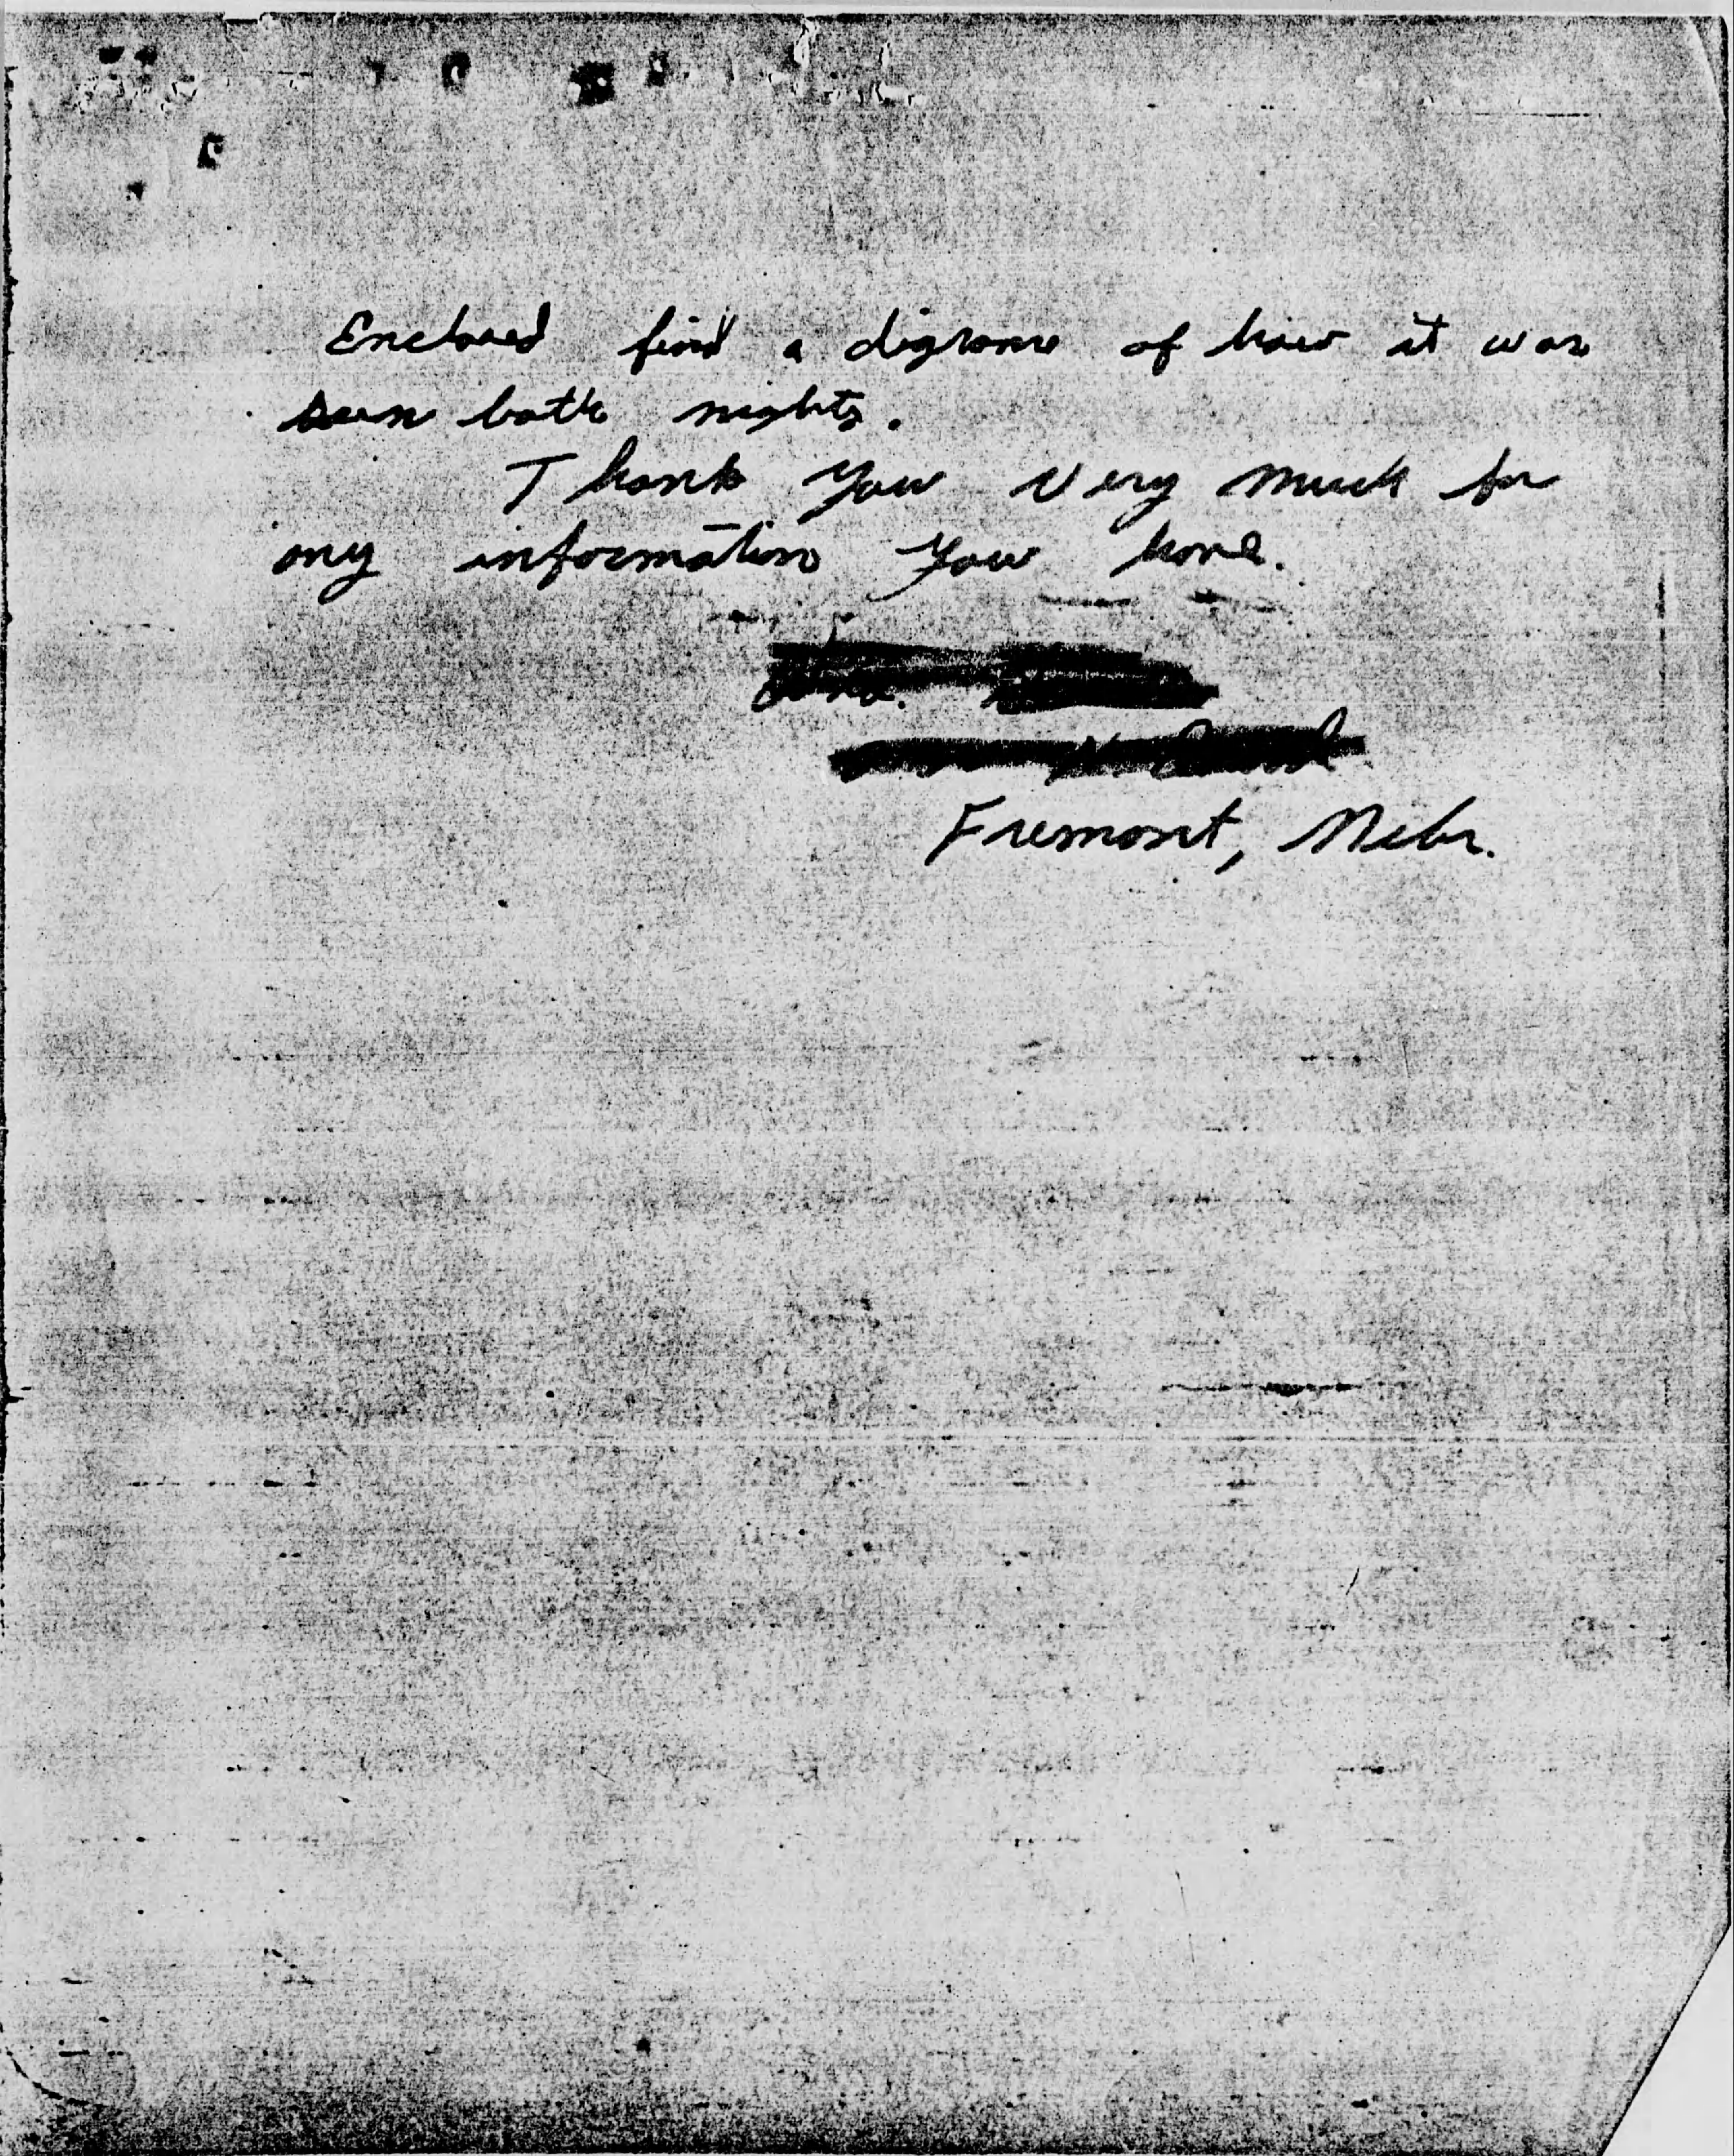 Enclosed find a digrame of how it was
seen both nights.
Thank you very much for
any information you have.
Fremont, Nebr.